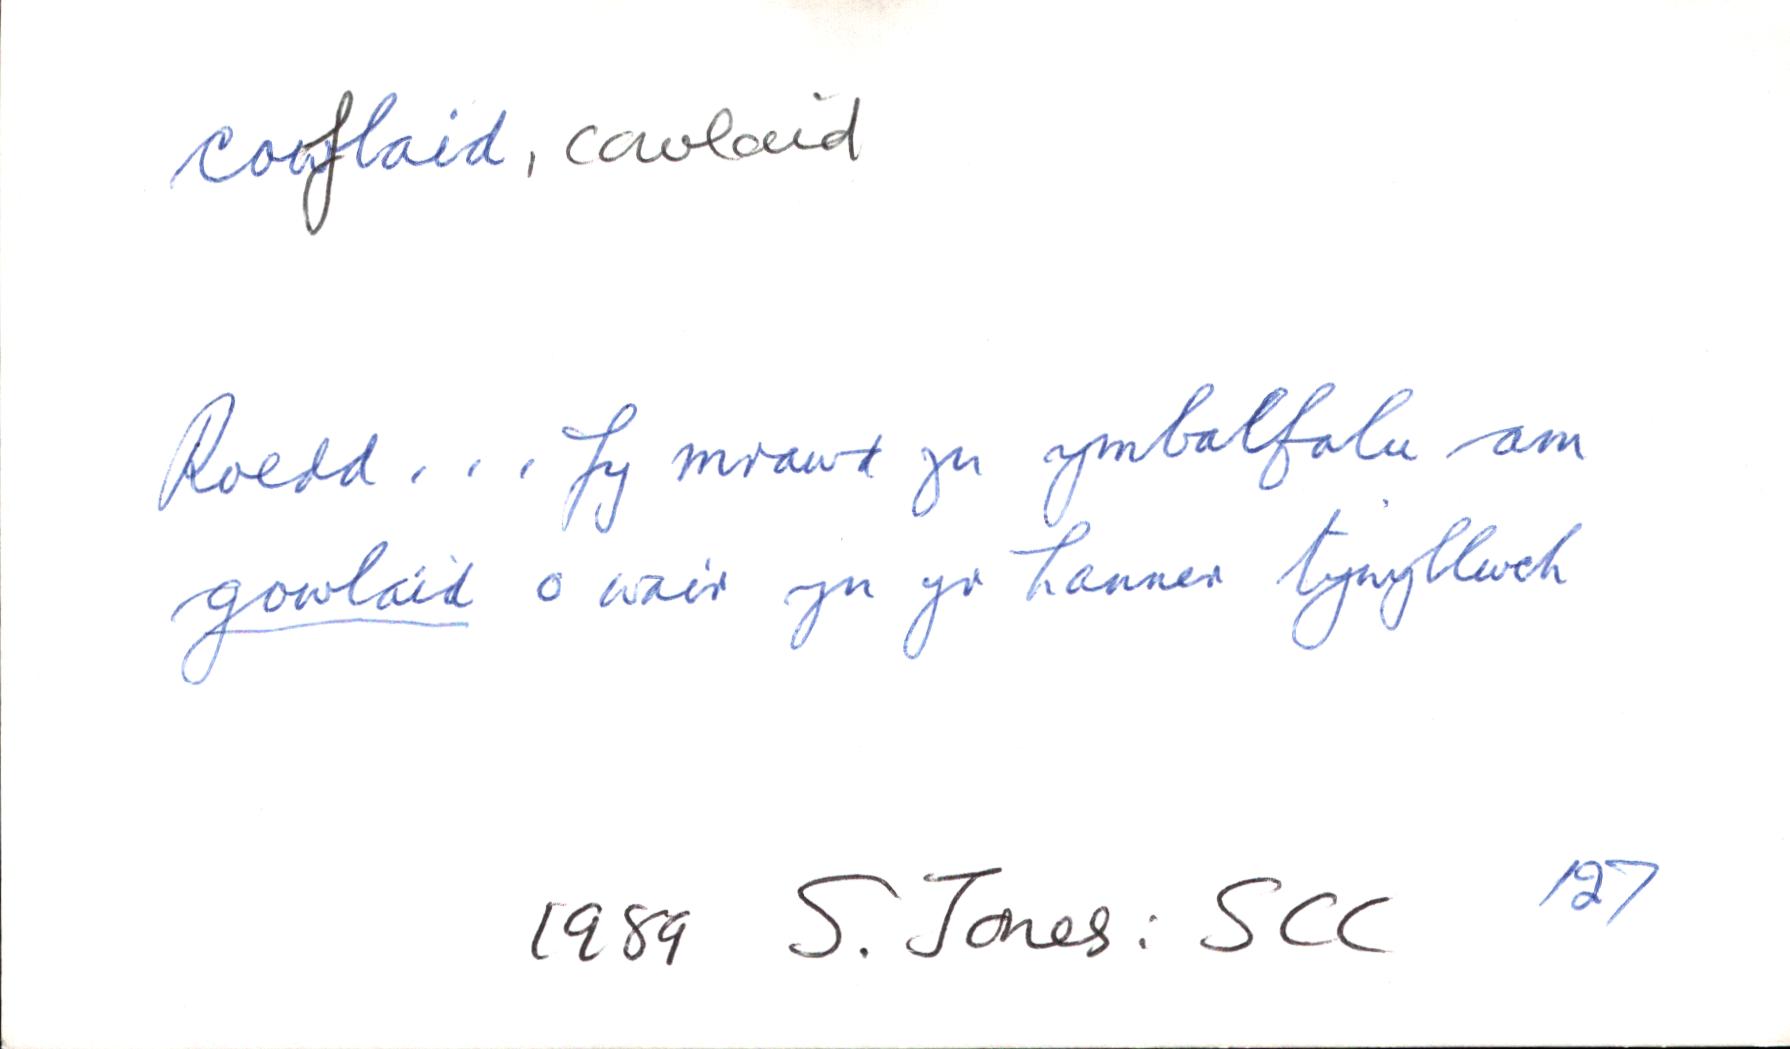 cowflaid, cowlaid
Roedd . . . fy mrawd yn ymbalfalu am
gowlaid o wair yn yr hanner tywyllwch
1989 S. Jones: SCC 127